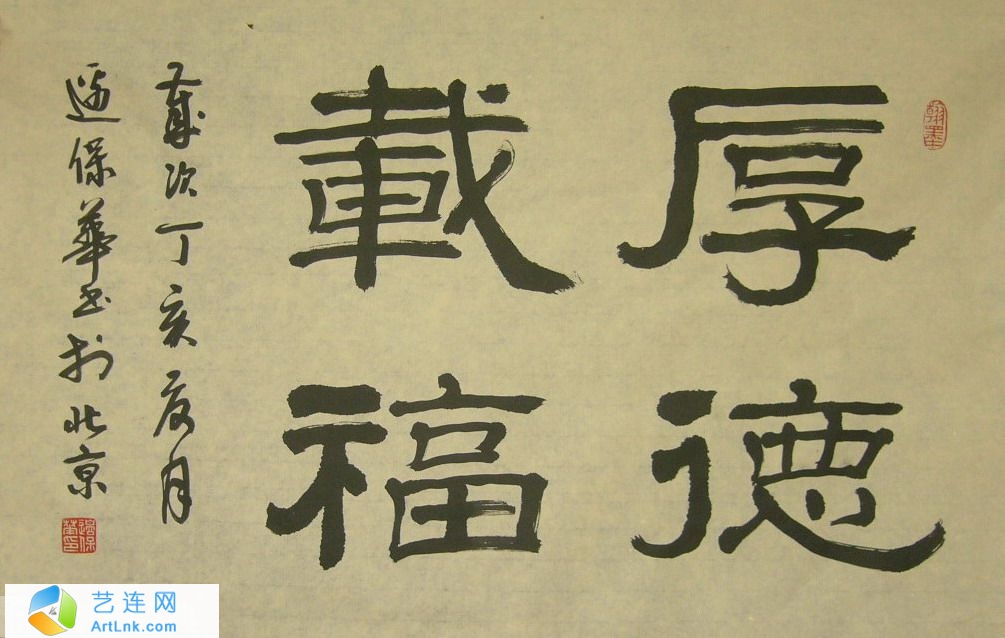 厚德
載福
歲次丁亥夏月
邊保華書於北京
邊保華印
艺连网
ArtLnk.com